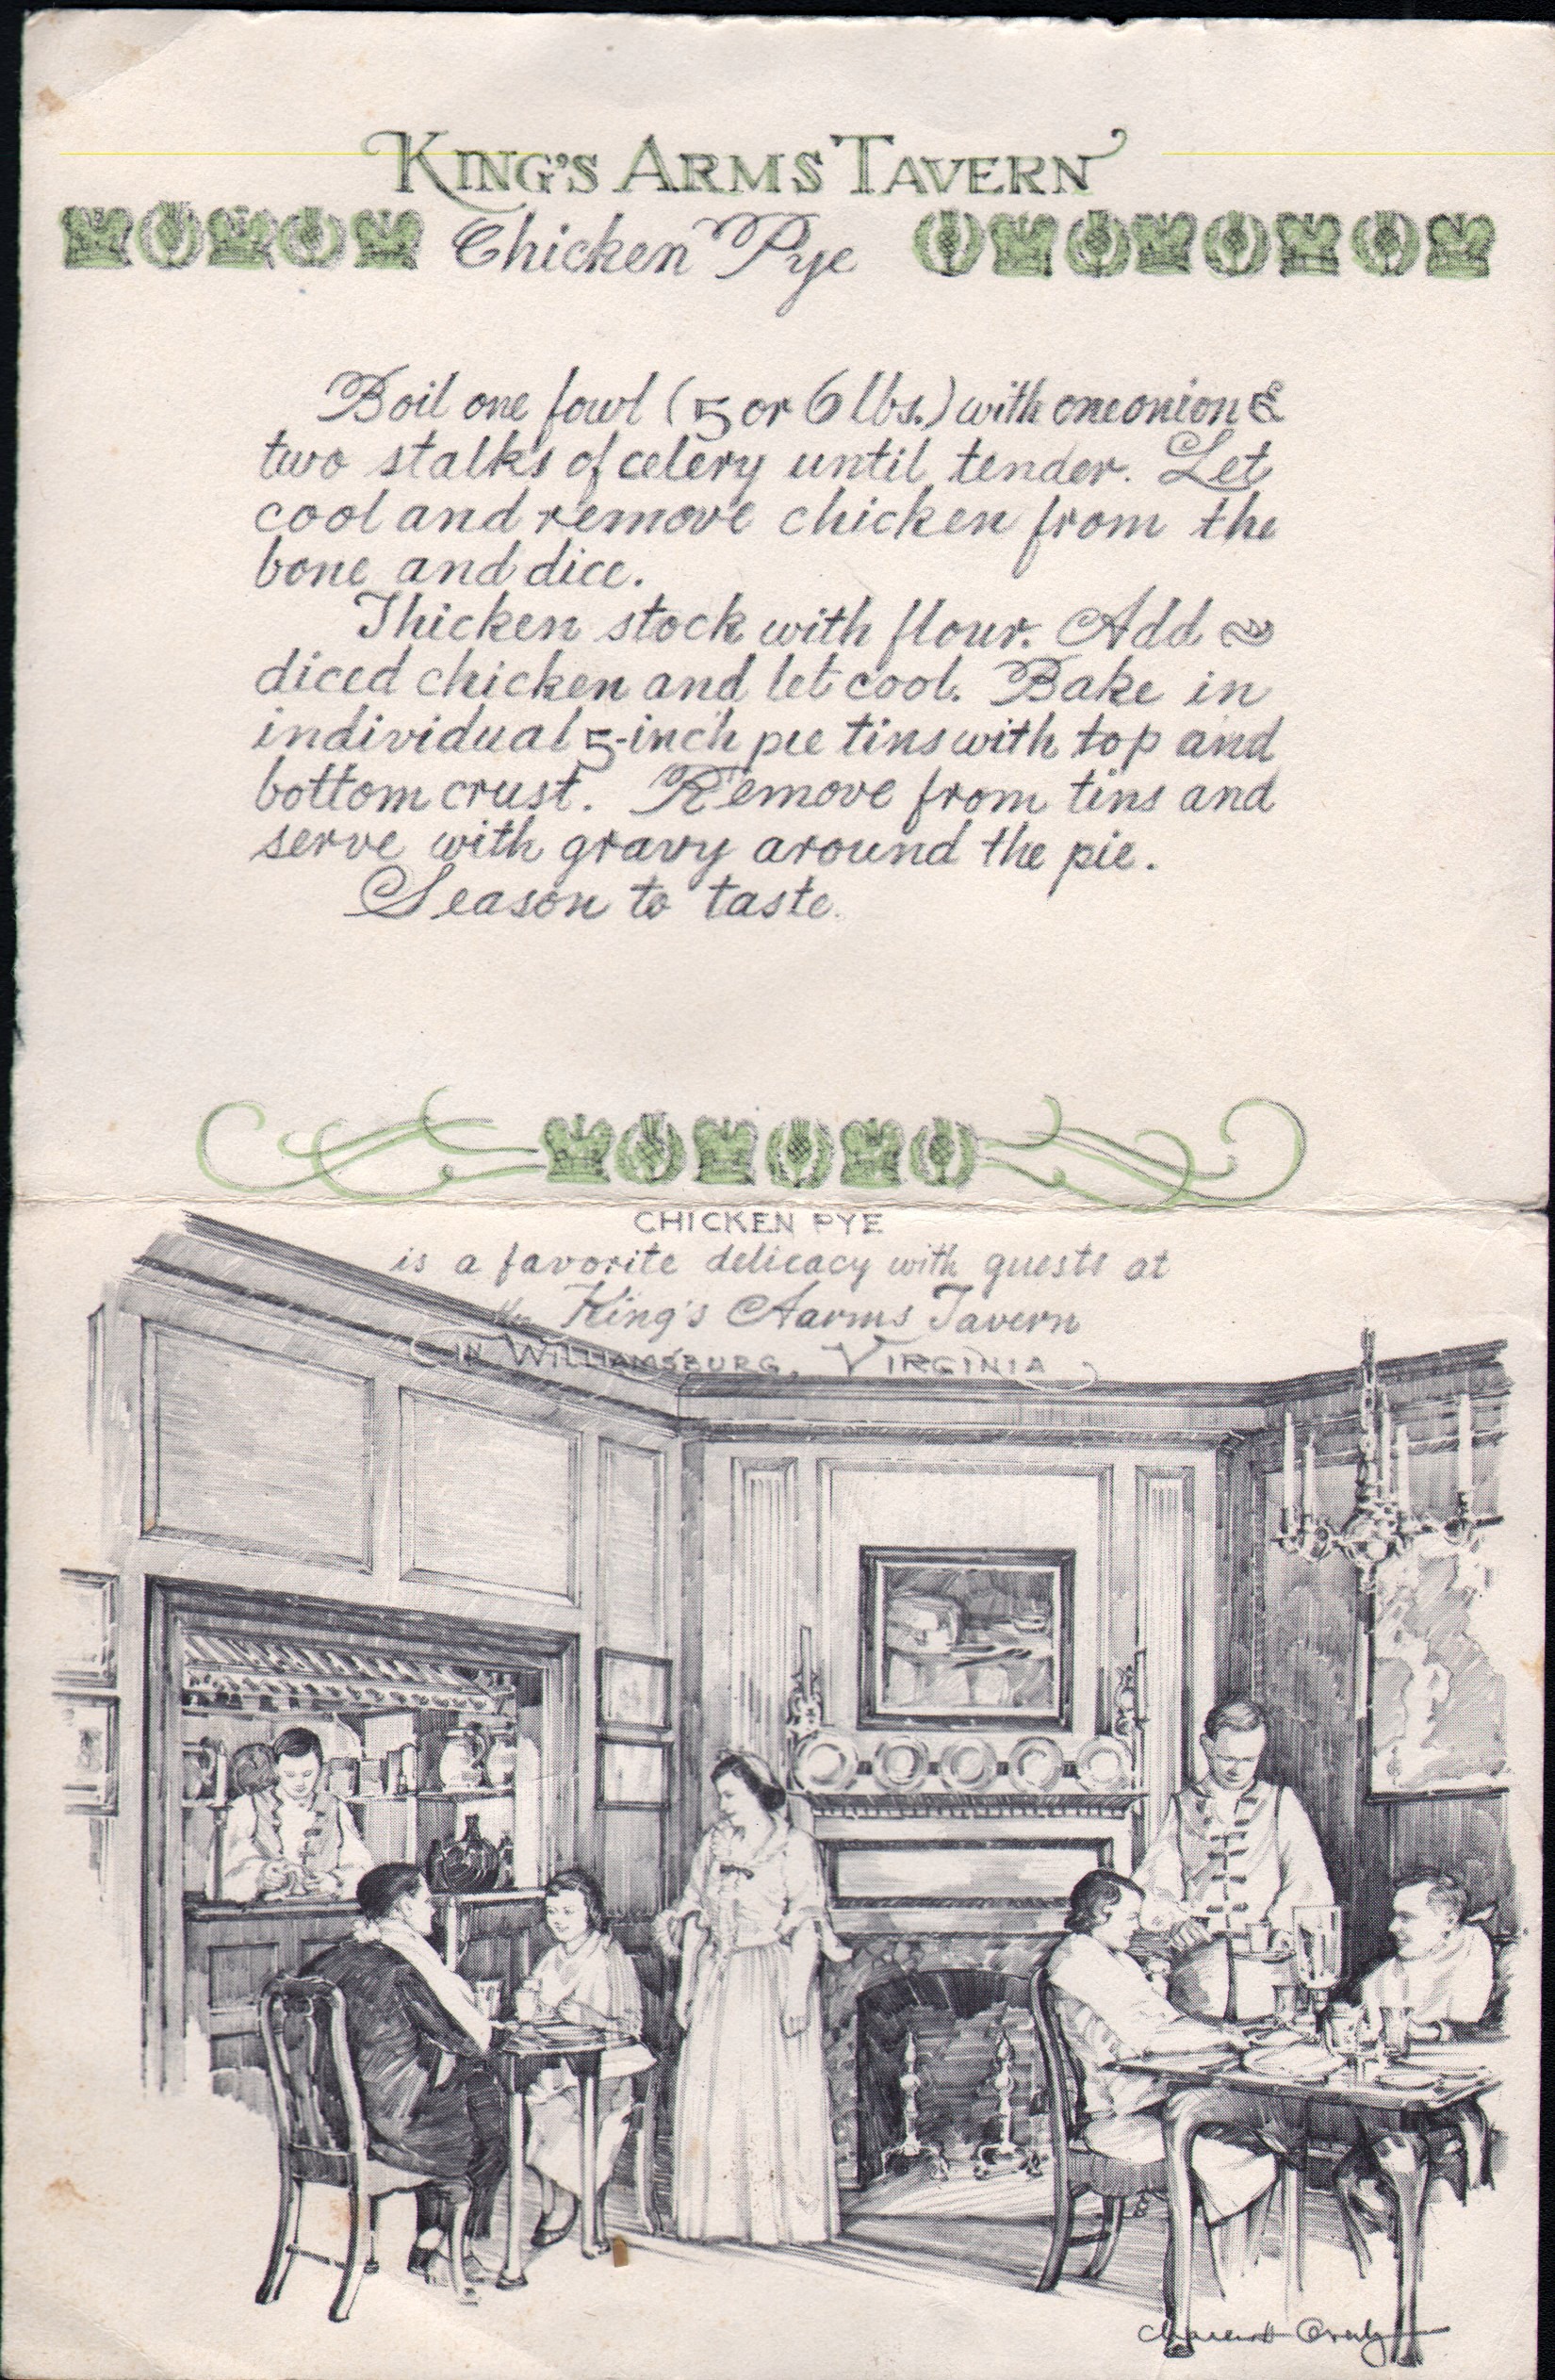 KING'S ARMS TAVERN
Chicken Pye
Boil one fowl (5 or 6 lbs.) with one onion &
two stalks of celery until tender. Let
cool and remove chicken from the
bone and dice.
Thicken stock with flour. Add
diced chicken and let cool. Bake in
individual 5-inch pie tins with top and
bottom crust. Remove from tins and
serve with gravy around the pie.
Season to taste.
CHICKEN PYE
is a favorite delicacy with guests at
the King's Aarms Tavern
IN WILLIAMSBURG, VIRGINIA